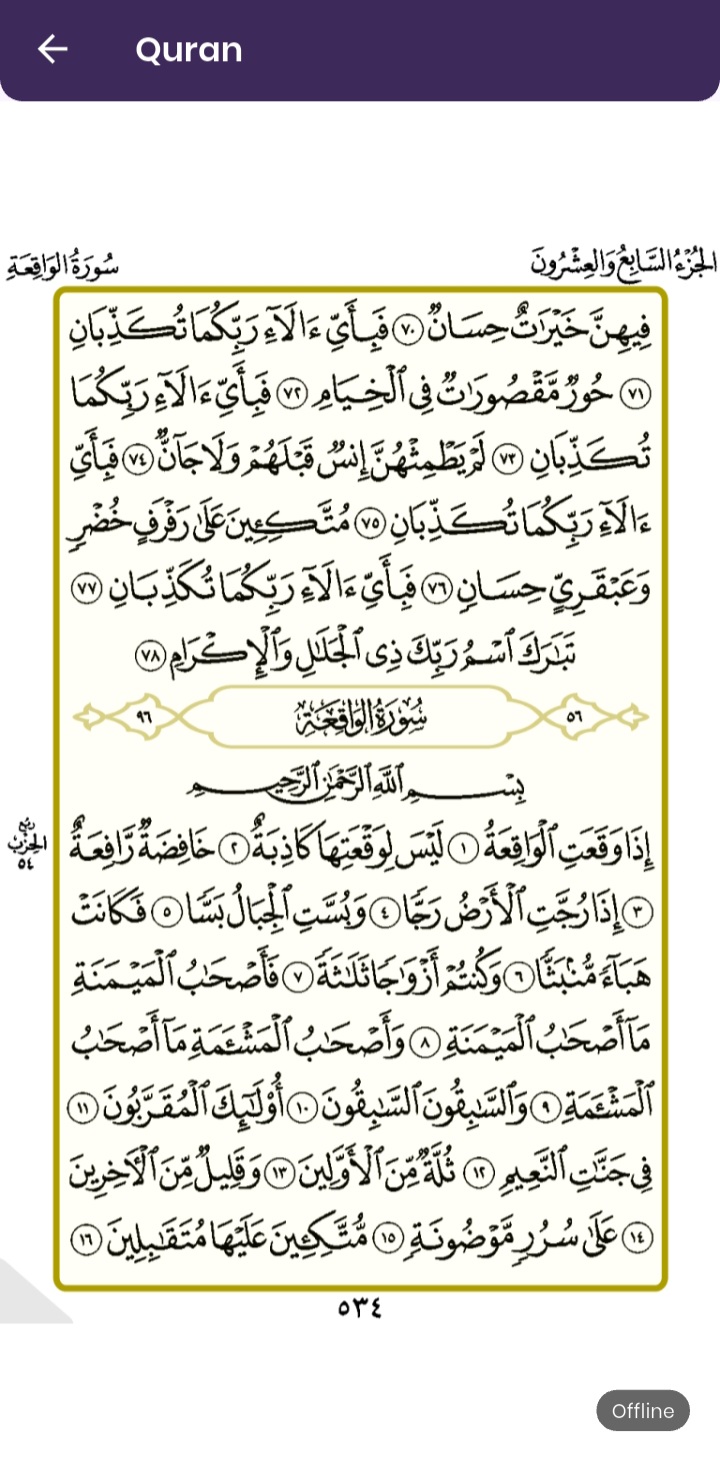 Quran
الجُزْءُ السَّابِعُ وَالعِشْرُونَ
سُورَةُ الوَاقِعَةِ
فِيهِنَّ خَيْرَٰتٌ حِسَانٌ ٧٠ فَبِأَيِّ ءَالَآءِ رَبِّكُمَا تُكَذِّبَانِ
٧١ حُورٌ مَّقْصُورَٰتٌ فِى ٱلْخِيَامِ ٧٢ فَبِأَيِّ ءَالَآءِ رَبِّكُمَا
تُكَذِّبَانِ ٧٣ لَمْ يَطْمِثْهُنَّ إِنسٌ قَبْلَهُمْ وَلَا جَآنٌّ ٧٤ فَبِأَيِّ
ءَالَآءِ رَبِّكُمَا تُكَذِّبَانِ ٧٥ مُتَّكِـِٔينَ عَلَىٰ رَفْرَفٍ خُضْرٍ
وَعَبْقَرِىٍّ حِسَانٍ ٧٦ فَبِأَيِّ ءَالَآءِ رَبِّكُمَا تُكَذِّبَانِ ٧٧
تَبَٰرَكَ ٱسْمُ رَبِّكَ ذِى ٱلْجَلَٰلِ وَٱلْإِكْرَامِ ٧٨
٥٦ سُورَةُ الوَاقِعَةِ ٩٦
بِسْمِ ٱللَّهِ ٱلرَّحْمَٰنِ ٱلرَّحِيمِ
إِذَا وَقَعَتِ ٱلْوَاقِعَةُ ١ لَيْسَ لِوَقْعَتِهَا كَاذِبَةٌ ٢ خَافِضَةٌ رَّافِعَةٌ
ربع
الحزب
٥٤
٣ إِذَا رُجَّتِ ٱلْأَرْضُ رَجًّا ٤ وَبُسَّتِ ٱلْجِبَالُ بَسًّا ٥ فَكَانَتْ
هَبَآءً مُّنۢبَثًّا ٦ وَكُنتُمْ أَزْوَٰجًا ثَلَٰثَةً ٧ فَأَصْحَٰبُ ٱلْمَيْمَنَةِ
مَآ أَصْحَٰبُ ٱلْمَيْمَنَةِ ٨ وَأَصْحَٰبُ ٱلْمَشْـَٔمَةِ مَآ أَصْحَٰبُ
ٱلْمَشْـَٔمَةِ ٩ وَٱلسَّٰبِقُونَ ٱلسَّٰبِقُونَ ١٠ أُو۟لَٰٓئِكَ ٱلْمُقَرَّبُونَ ١١
فِى جَنَّٰتِ ٱلنَّعِيمِ ١٢ ثُلَّةٌ مِّنَ ٱلْأَوَّلِينَ ١٣ وَقَلِيلٌ مِّنَ ٱلْـَٔاخِرِينَ
١٤ عَلَىٰ سُرُرٍ مَّوْضُونَةٍ ١٥ مُّتَّكِـِٔينَ عَلَيْهَا مُتَقَٰبِلِينَ ١٦
٥٣٤
Offline